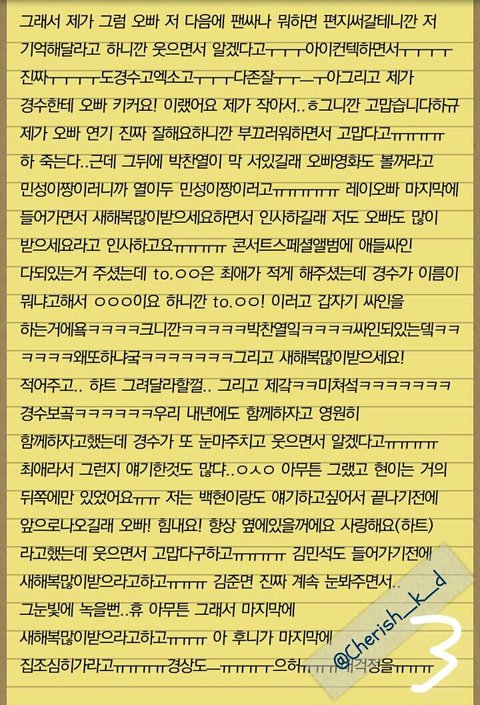 그래서 제가 그럼 오빠 저 다음에 팬싸나 뭐하면 편지써갈테니깐 저
기억해달라고 하니깐 웃으면서 알겠다고ㅜㅜㅜ아이컨텍하면서ㅜㅜㅜㅜ
진짜ㅜㅜㅜㅜ도경수고엑소고ㅜㅜㅜ다존잘ㅜㅜㅡㅜ아그리고 제가
경수한테 오빠 키커요! 이랬어요 제가 작아서..ㅎ그니깐 고맙습니다하규
제가 오빠 연기 진짜 잘해요하니깐 부끄러워하면서 고맙다고ㅠㅠㅠㅠ
하 죽는다..근데 그뒤에 박찬열이 막 서있길래 오빠영화도 볼꺼라고
민성이짱이러니까 열이두 민성이짱이러고ㅠㅠㅠㅠㅠ 레이오빠 마지막에
들어가면서 새해복많이받으세요하면서 인사하길래 저도 오빠도 많이
받으세요라고 인사하고요ㅠㅠㅠㅠ 콘서트스페셜앨범에 애들싸인
다되있는거 주셨는데 to.ㅇㅇ은 최애가 적게 해주셨는데 경수가 이름이
뭐냐고해서 ㅇㅇㅇ이요 하니깐 to.ㅇㅇ! 이러고 갑자기 싸인을
하는거에욬ㅋㅋㅋㅋ크니깐ㅋㅋㅋㅋㅋ박찬열잌ㅋㅋㅋㅋ싸인되있는뎈ㅋㅋ
ㅋㅋㅋㅋ왜또하냐궄ㅋㅋㅋㅋㅋㅋㅋ그리고 새해복많이받으세요!
적어주고.. 하트 그려달라할껄.. 그리고 제갘ㅋㅋ미쳐섴ㅋㅋㅋㅋㅋㅋㅋ
경수보곸ㅋㅋㅋㅋㅋㅋ우리 내년에도 함께하자고 영원히
함께하자고했는데 경수가 또 눈마주치고 웃으면서 알겠다고ㅠㅠㅠㅠ
최애라서 그런지 얘기한것도 많댜..ㅇㅅㅇ 아무튼 그랬고 현이는 거의
뒤쪽에만 있었어요ㅠㅠ 저는 백현이랑도 얘기하고싶어서 끝나기전에
앞으로나오길래 오빠! 힘내요! 항상 옆에있을꺼에요 사랑해요(하트)
라고했는데 웃으면서 고맙다구하고ㅠㅠㅠㅠ 김민석도 들어가기전에
새해복많이받으라고하고ㅠㅠㅠ 김준면 진짜 계속 눈봐주면서..
그눈빛에 녹을뻔..휴 아무튼 그래서 마지막에
새해복많이받으라고하고ㅠㅠㅠ 아 후니가 마지막에
집조심히가라고ㅠㅠㅠㅠ경상도ㅡㅠㅠㅠㅜ으허ㅠㅠㅠ걱정을ㅠㅠㅠ
@Cherish_k_d
3